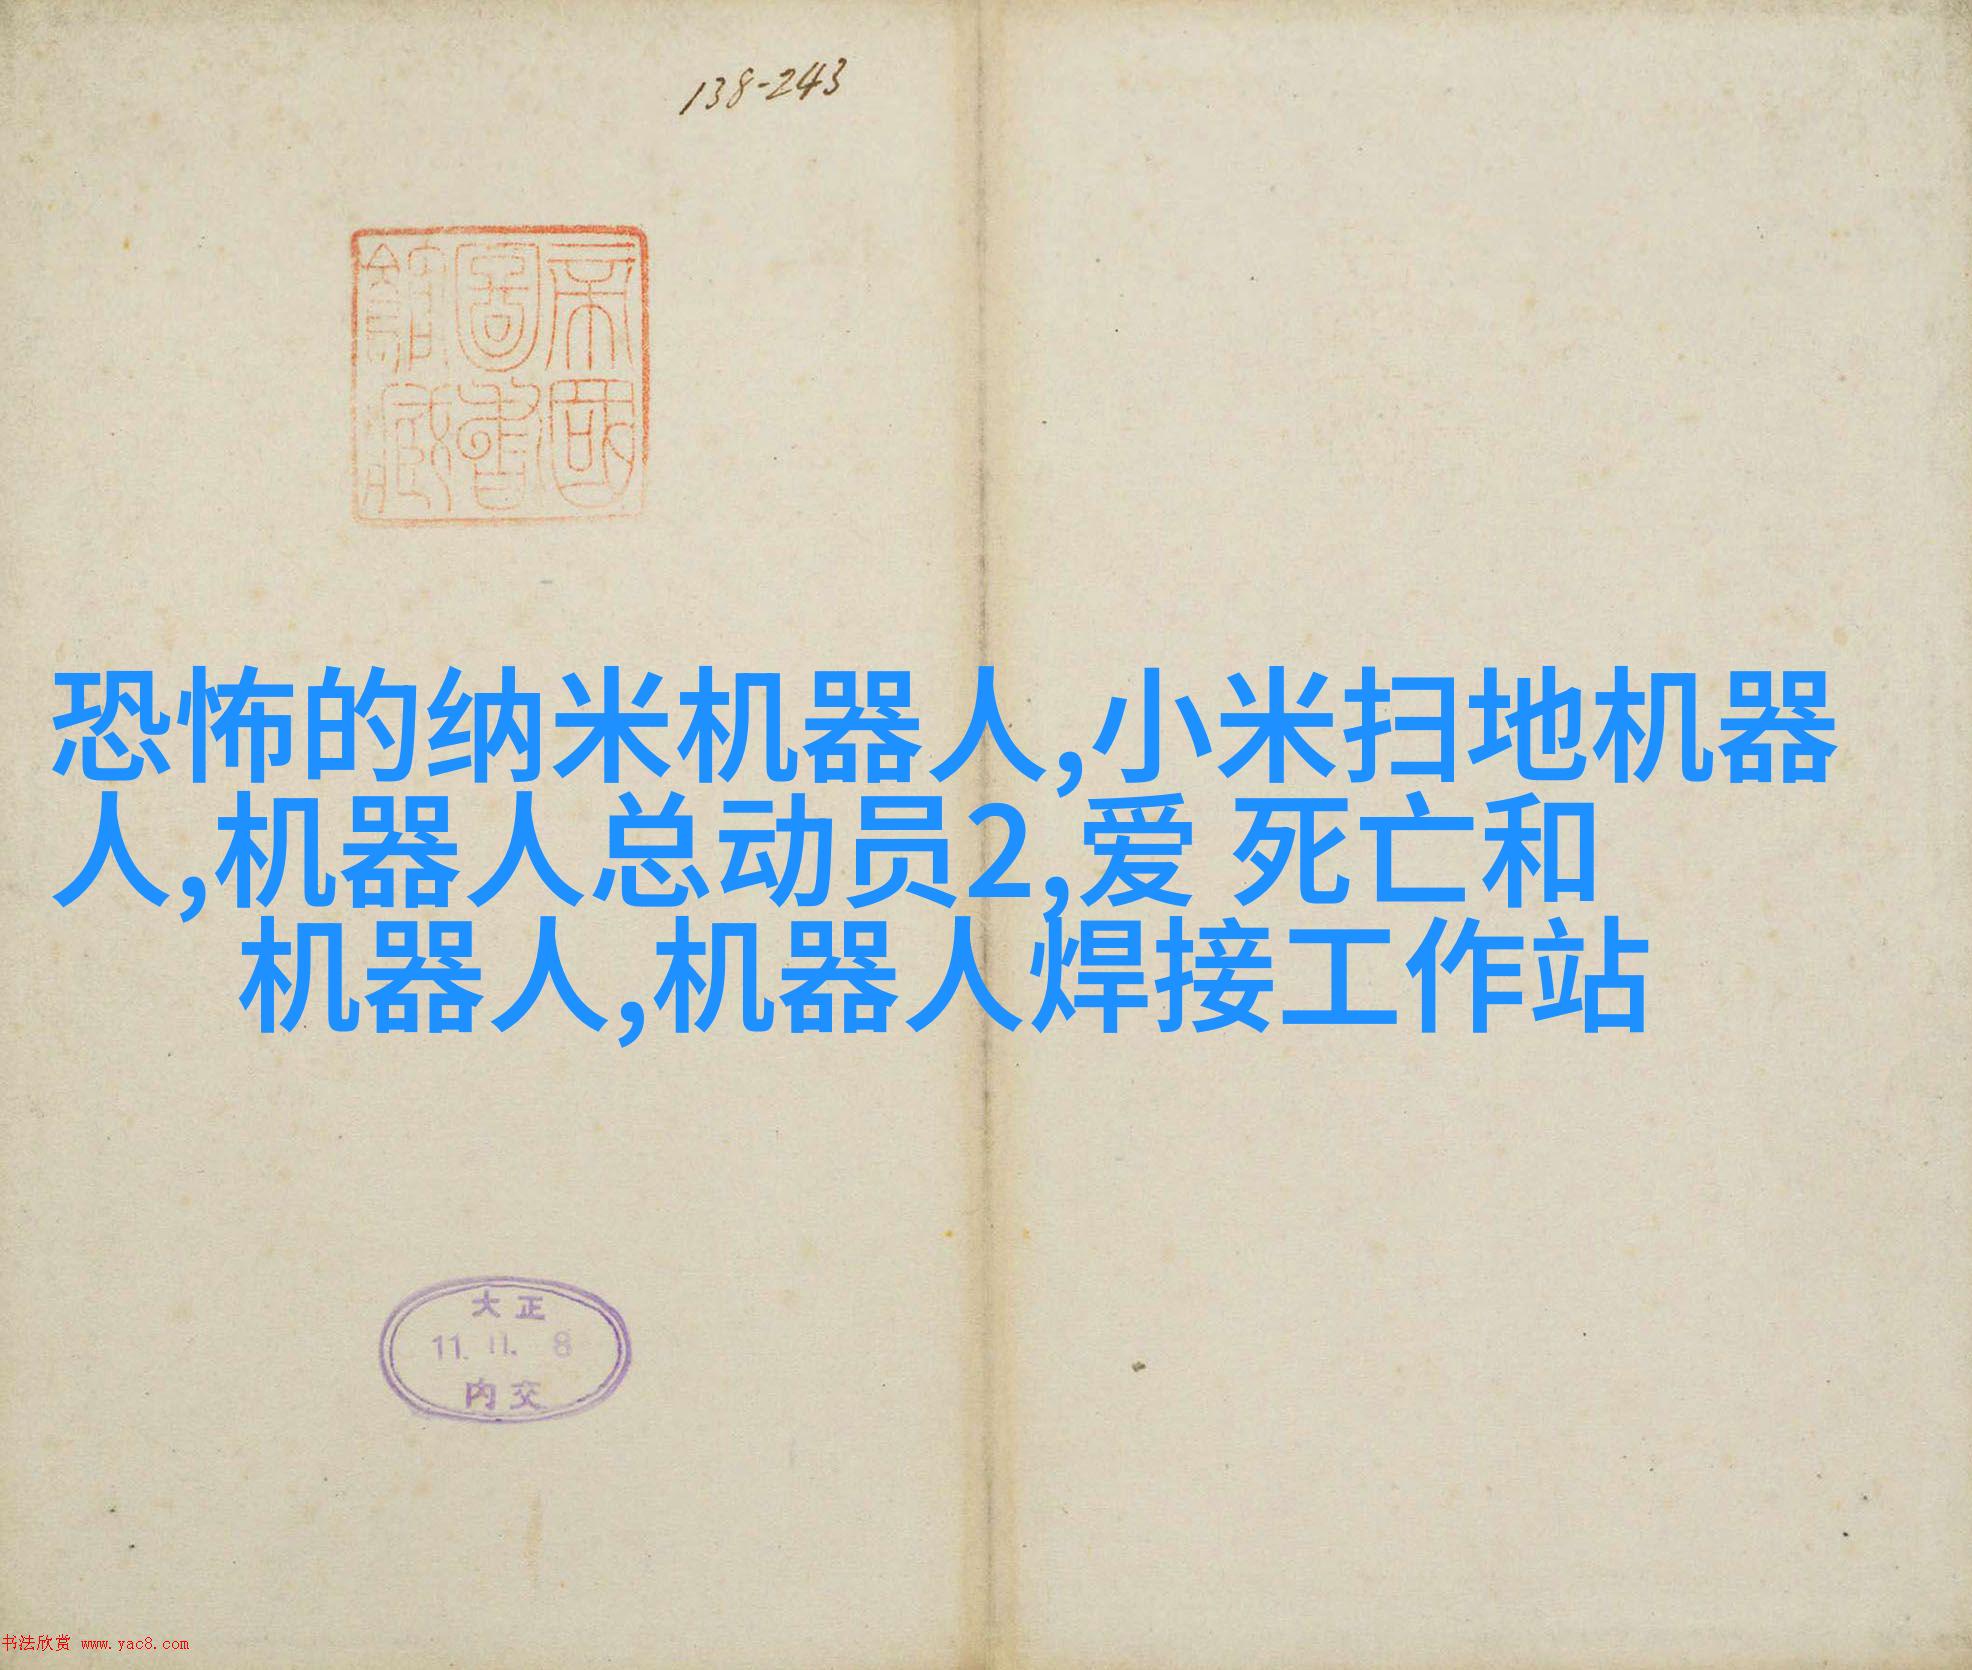 138-243
帝國
圖書
館藏
恐怖的纳米机器人,小米扫地机器
人,机器人总动员2,爱 死亡和
机器人,机器人焊接工作站
大正
11. 11. 8
内交
书法欣赏 www.yac8.com